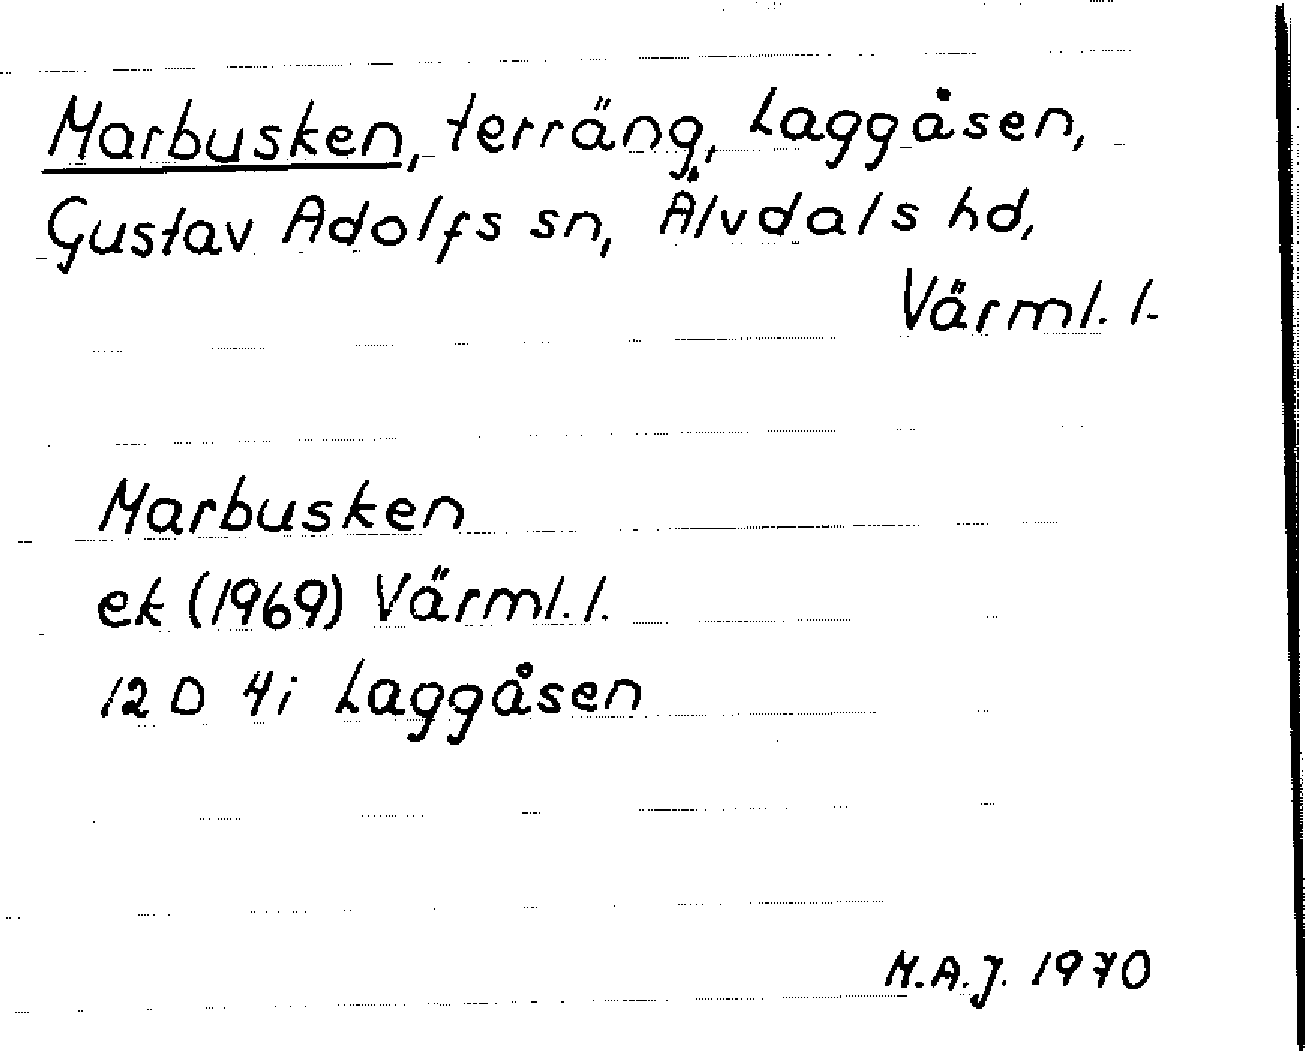 Marbusken, terräng, Laggåsen,
Gustav Adolfs sn, Älvdals hd,
Värml. l.
Marbusken
ek (1969) Värml. l.
12 D 4i Laggåsen
M.A.J. 1970